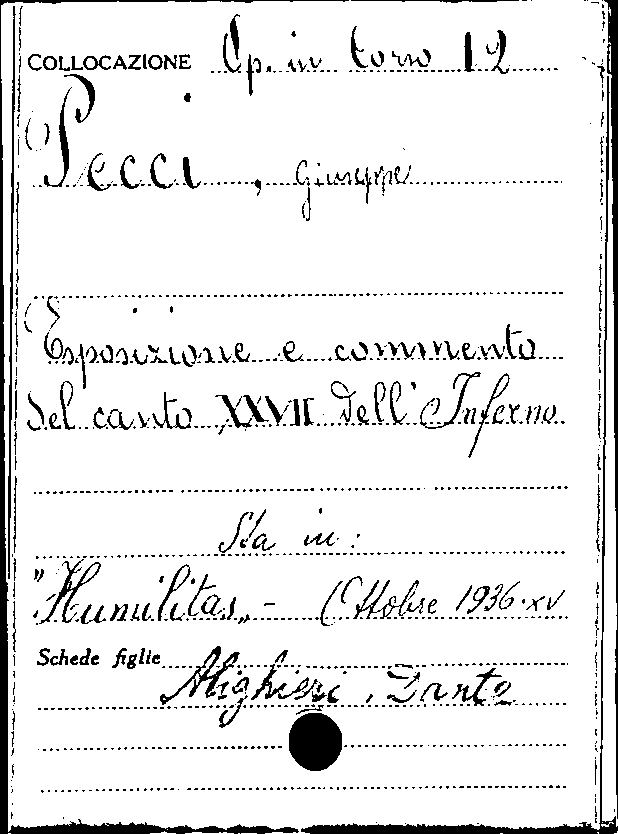 COLLOCAZIONE Op. in Corso 12
Pecci, Giuseppe
Esposizione e commento
del canto XXVII dell'Inferno
Sta in:
"Humilitas„ - Ottobre 1936·XV
Schede figlie
Alighieri, Dante